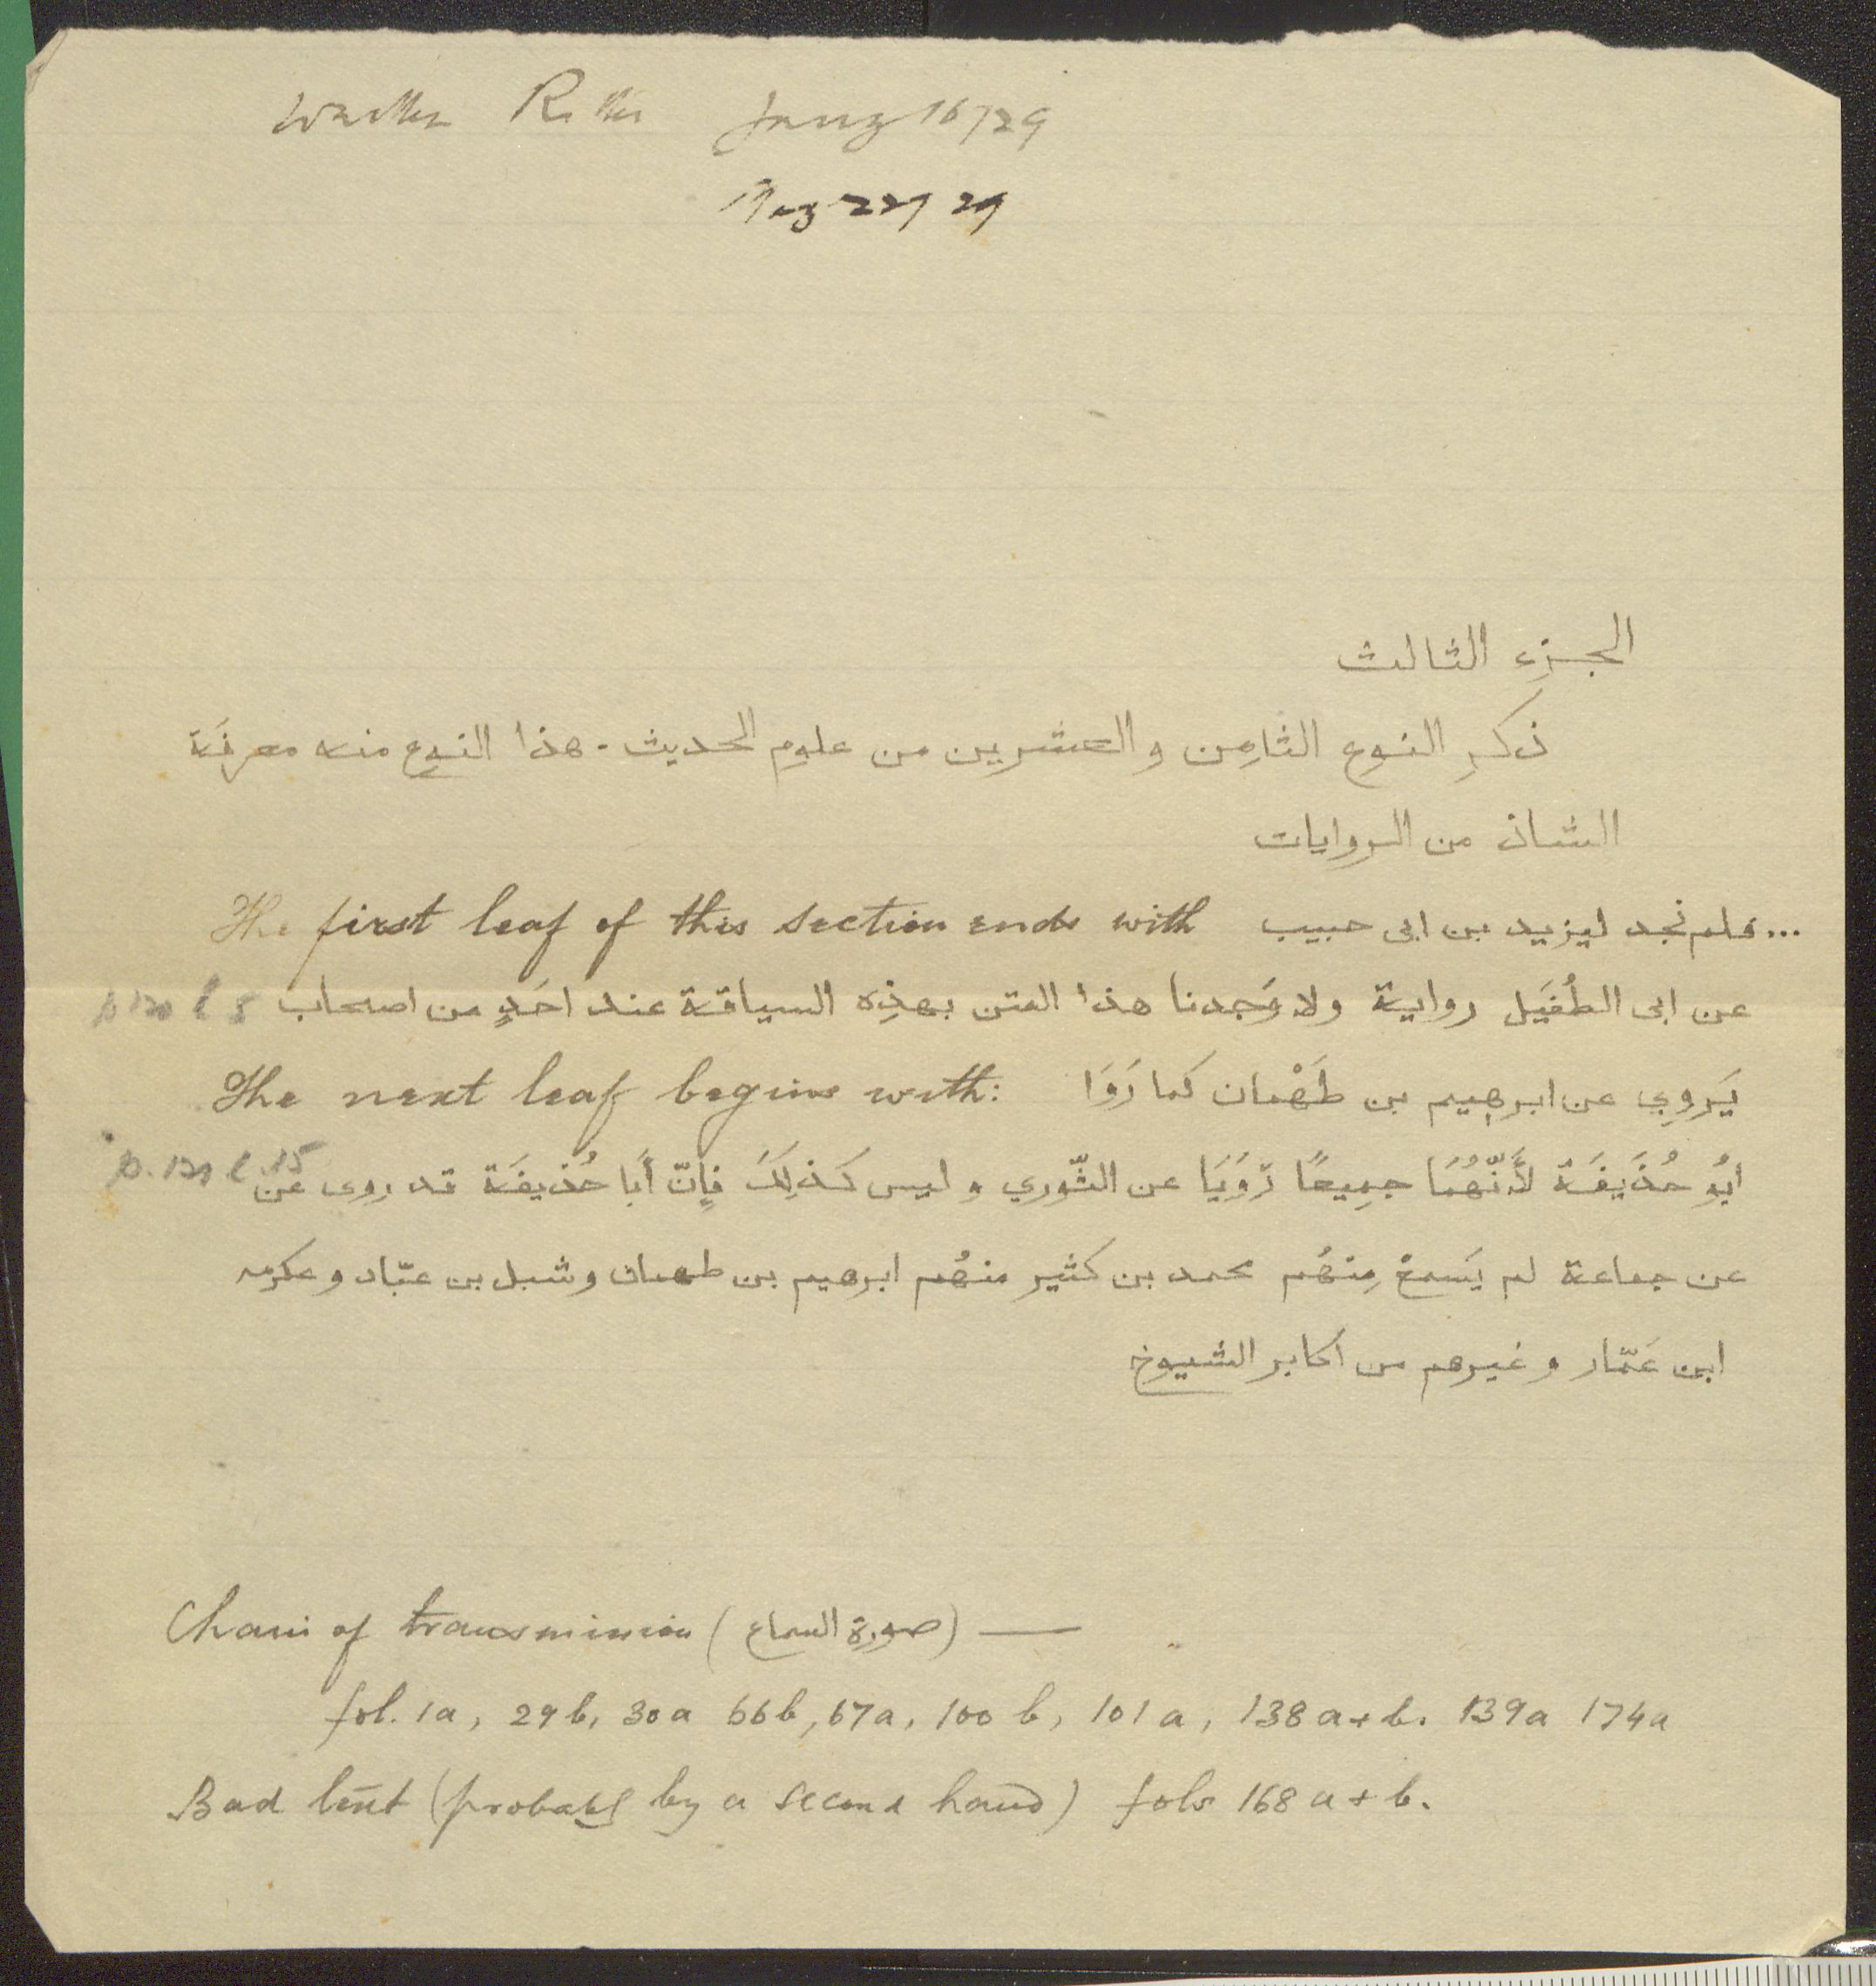 الجزء الثالث
ذكرِ النوعِ الثامِن والعشرين من علومِ الحديث - هذا النوع منه معرفَة
الشاذ من الروايات
The first leaf of this section ends with ... فلم نجد ليزيد بن ابى حبيب
عن ابى الطُفَيل رواية ولا وَجدنا هذا المتن بهذِه السياقة عند احَدٍ من اصحاب
The next leaf begins with: يَروِي عن ابرهِيم بن طَهْمان كما رَوَا
ابُو حُذَيفَة لأَنّهُمَا جمِيعًا رَوَيَا عن الثّوري وليس كَذلِكَ فإنّ أَبا حُذيفَة قد روى عن
عن جماعة لم يَسمعْ مِنهُم محمد بن كثير منهُم ابرهيم بن طهمان وشبل بن عبّاد وعكرمه
ابن عَمّار وغيرهم من اكابر الشيوخ
Chain of transmission (صورة السماع) —
fol. 1a, 29b, 30a 66b, 67a, 100b, 101a, 138a+b. 139a 174a
Bad text (probably by a second hand) fols 168a+b.